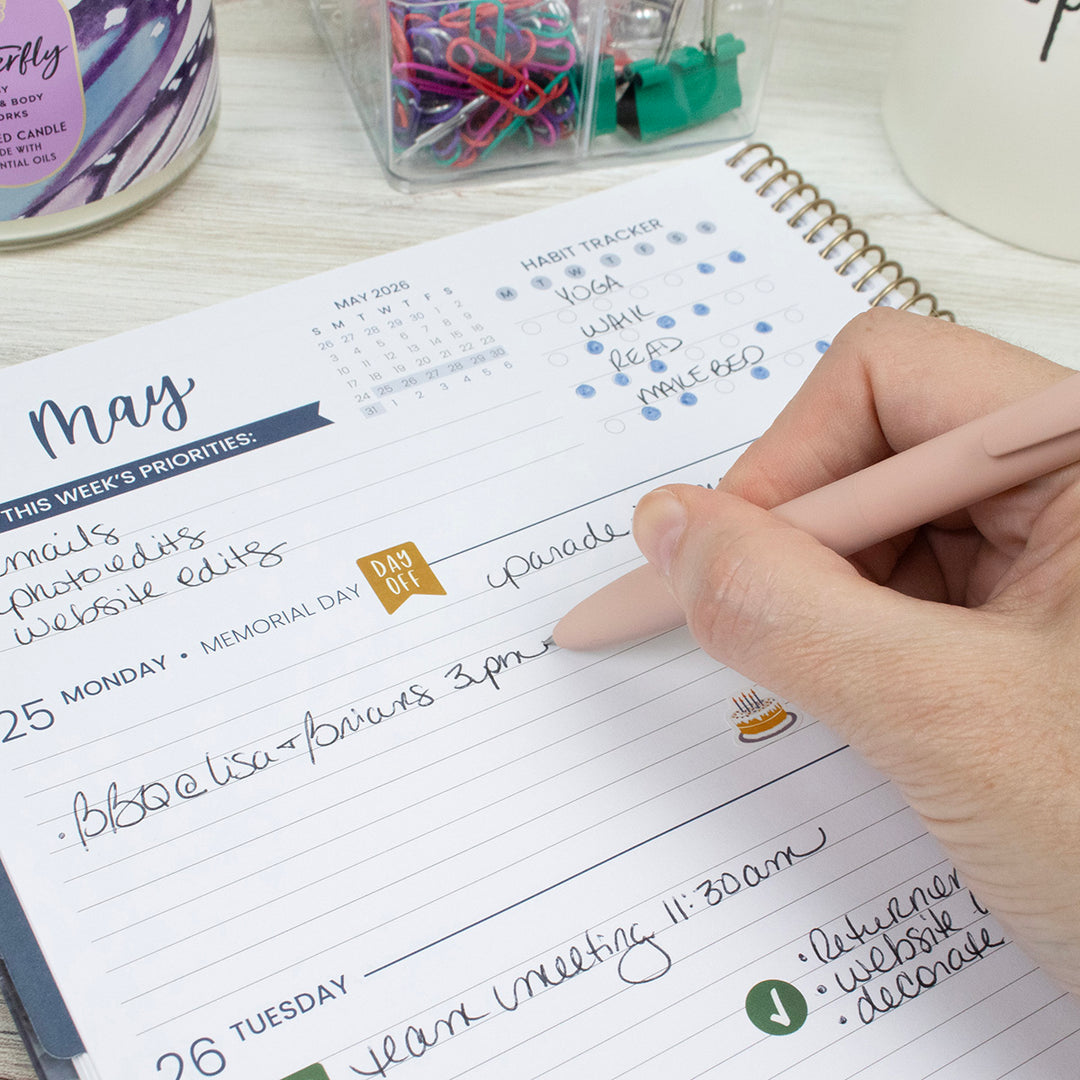 erfly
& BODY
ORKS
ED CANDLE
DE WITH
NTIAL OILS
MAY 2026
S M T W T F S
26 27 28 29 30 1 2
3 4 5 6 7 8 9
10 11 12 13 14 15 16
17 18 19 20 21 22 23
24 25 26 27 28 29 30
31 1 2 3 4 5 6
HABIT TRACKER
M T W T F S S
YOGA
WALK
READ
MAKE BED
May
THIS WEEK'S PRIORITIES:
emails
photo edits
website edits
25 MONDAY • MEMORIAL DAY
DAY
OFF
parade
• BBQ @ Lisa + Brians 3pm
26 TUESDAY
team meeting 11:30am
• website
• decorate